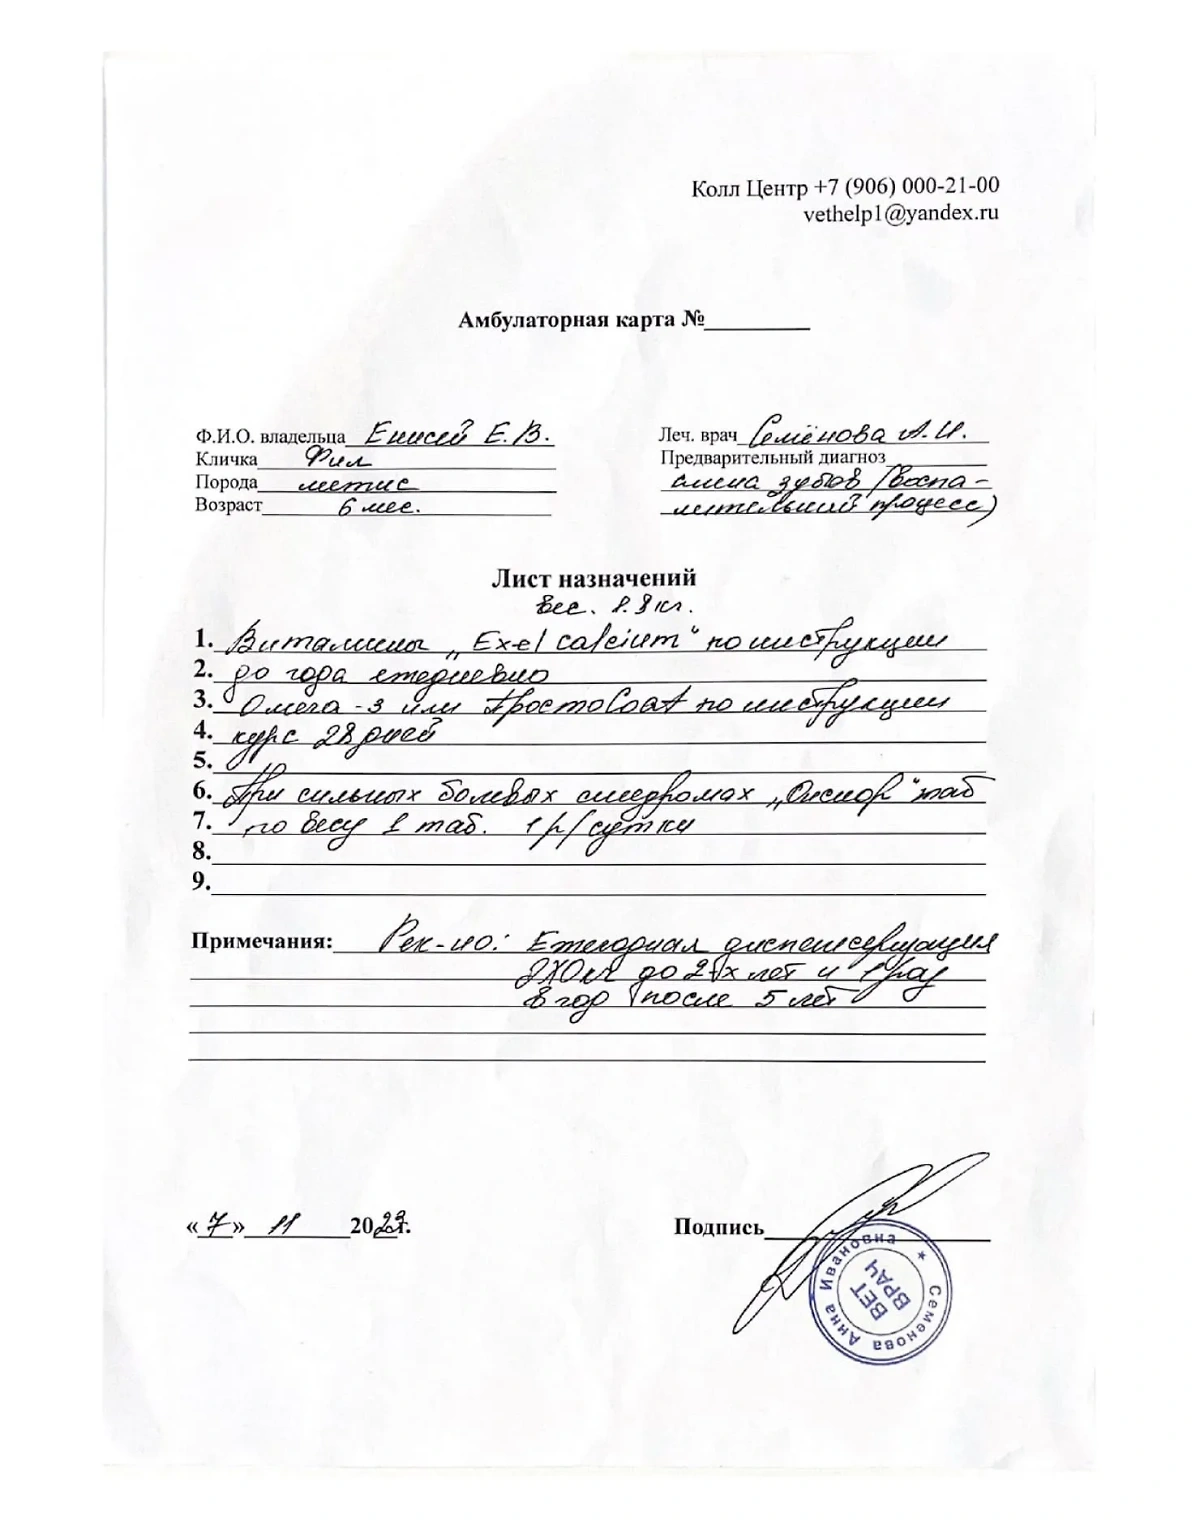 Колл Центр +7 (906) 000-21-00
vethelp1@yandex.ru
Амбулаторная карта №
Ф.И.О. владельца Енисей Е.В.
Кличка Фил
Порода метис
Возраст 6 мес.
Леч. врач Семёнова А.И.
Предварительный диагноз
смена зубов (воспа-
лительный процесс)
Лист назначений
Вес. 8.8 кг.
1. Витамины „Exel calcium“ по инструкции
2. до года ежедневно
3. Омега-3 или ПростоCoat по инструкции
4. курс 28 дней
5.
6. При сильных болевых синдромах таб
7. по весу 1 таб. 1 р/сутки
8.
9.
Примечания: Рек-но: Ежегодная диспансеризация
до 2-х лет и 1 раз
в год после 5 лет
«7» 11 2023г.
Подпись
Семенова Анна Ивановна
ВЕТ
ВРАЧ